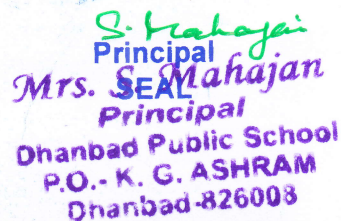 S. Mahajan
Principal
SEAL
Mrs. S. Mahajan
Principal
Dhanbad Public School
P.O.- K. G. ASHRAM
Dhanbad-826008